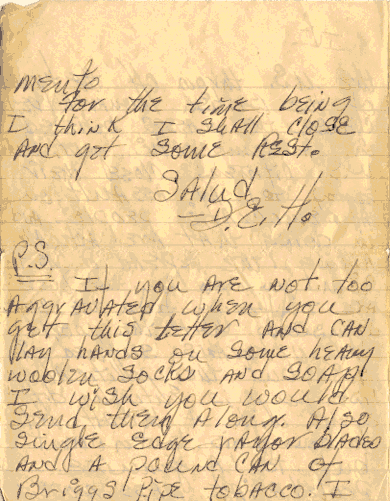 mento
For the time being
I think I shall close
And get some Rest.
Salud
—D.E.H.
P.S.
If you are not too
Aggravated when you
get this letter and can
lay hands on some heavy
woolen socks and soap
I wish you would
send them along. Also
single edge razor blades
and a pound can of
Briggs Pipe tobacco. I